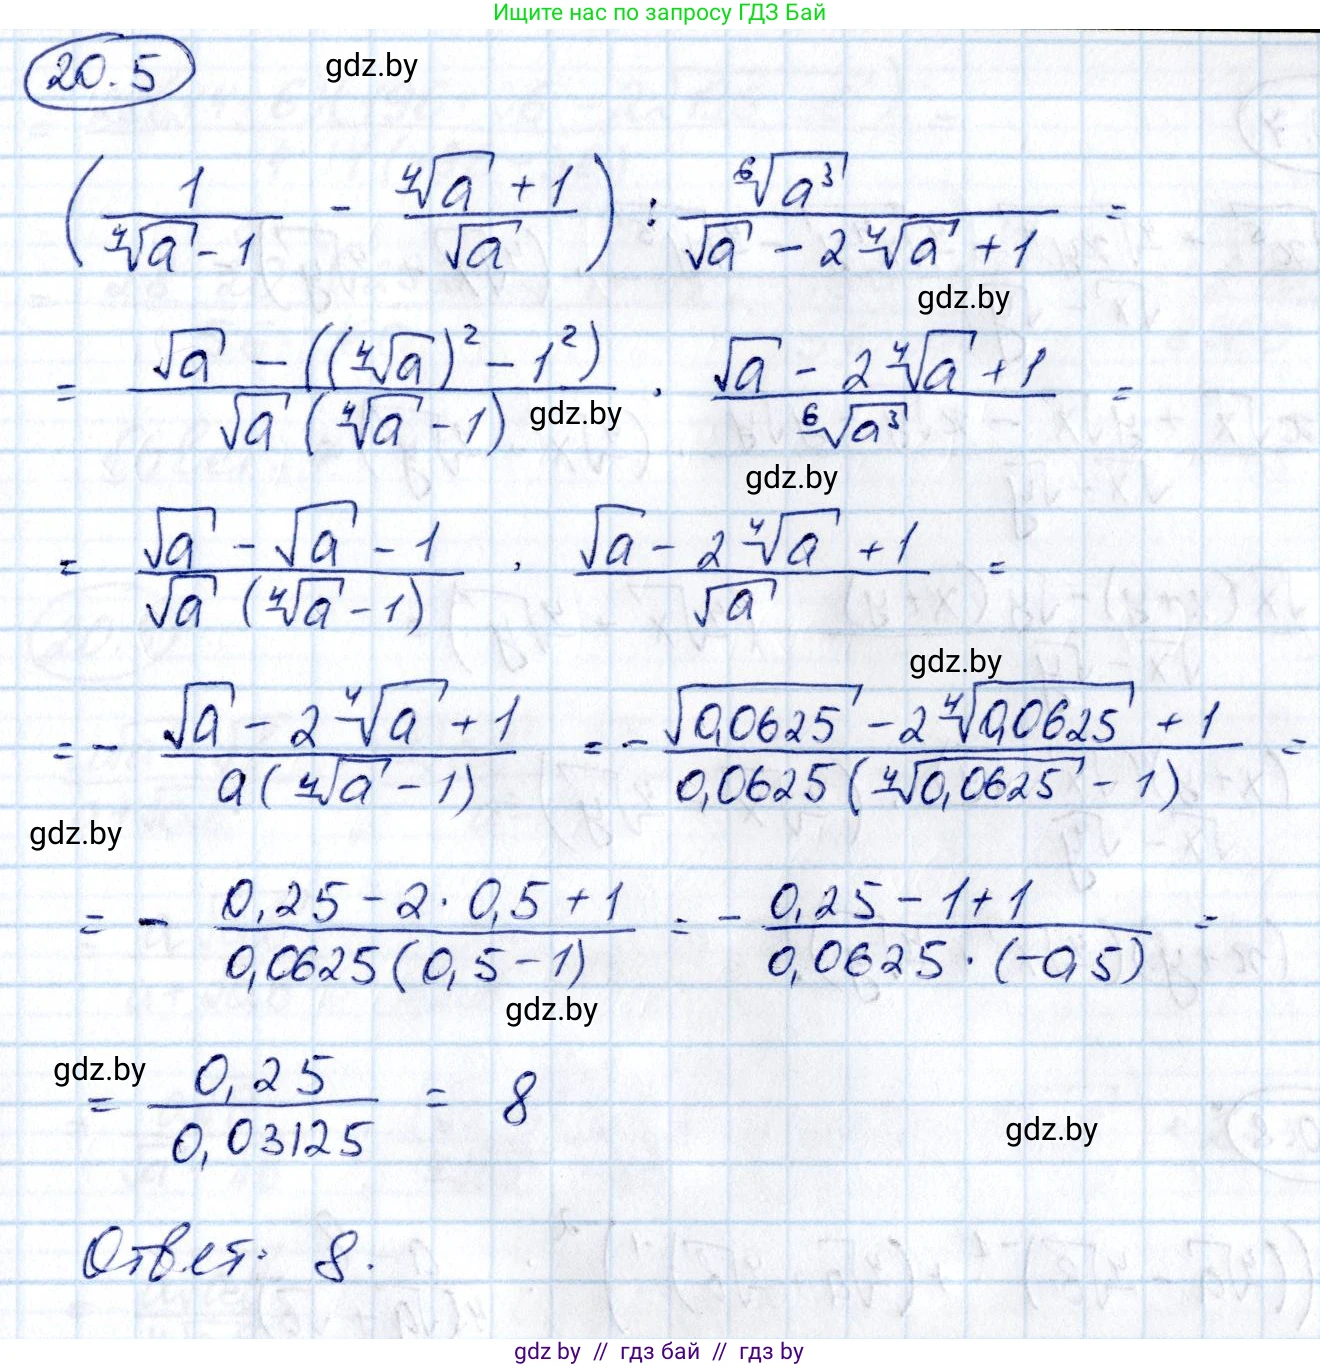 Ищите нас по запросу ГДЗ Бай
20.5 gdz.by
(1/(⁴√a - 1) - (⁴√a + 1)/√a) : ⁶√a³/(√a - 2⁴√a + 1) =
gdz.by
= (√a - ((⁴√a)² - 1²))/(√a (⁴√a - 1)) · (√a - 2⁴√a + 1)/⁶√a³ =
gdz.by
gdz.by
= (√a - √a - 1)/(√a (⁴√a - 1)) · (√a - 2⁴√a + 1)/√a =
gdz.by
= - (√a - 2⁴√a + 1)/(a(⁴√a - 1)) = - (√0,0625 - 2⁴√0,0625 + 1)/(0,0625(⁴√0,0625 - 1)) =
gdz.by
= - (0,25 - 2·0,5 + 1)/(0,0625(0,5 - 1)) = - (0,25 - 1 + 1)/(0,0625·(-0,5)) =
gdz.by
gdz.by
= 0,25/0,03125 = 8
gdz.by
Ответ: 8.
gdz by // гдз бай // гдз by